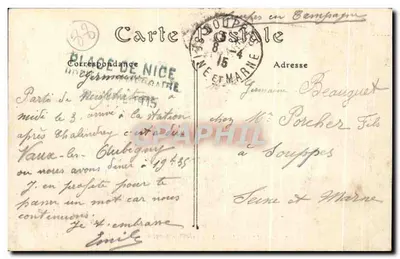 en Campagne
Carte Postale
Correspondance
Adresse
88
SOUPPES
8 - 4
15
NE ET MARNE
PLACE DE NICE
Germaine
Parti de
midi le 3. arrivé à la station
après Chalindrey c'est à dire
Vaux-les-Aubigny
ou nous avons diner à 19h35
J'en profite pour te
passer un mot car nous
continuons.
Je t'embrasse
Emile
Germaine Beauguet
chez Mr Porcher Fils
à Souppes
Seine et Marne